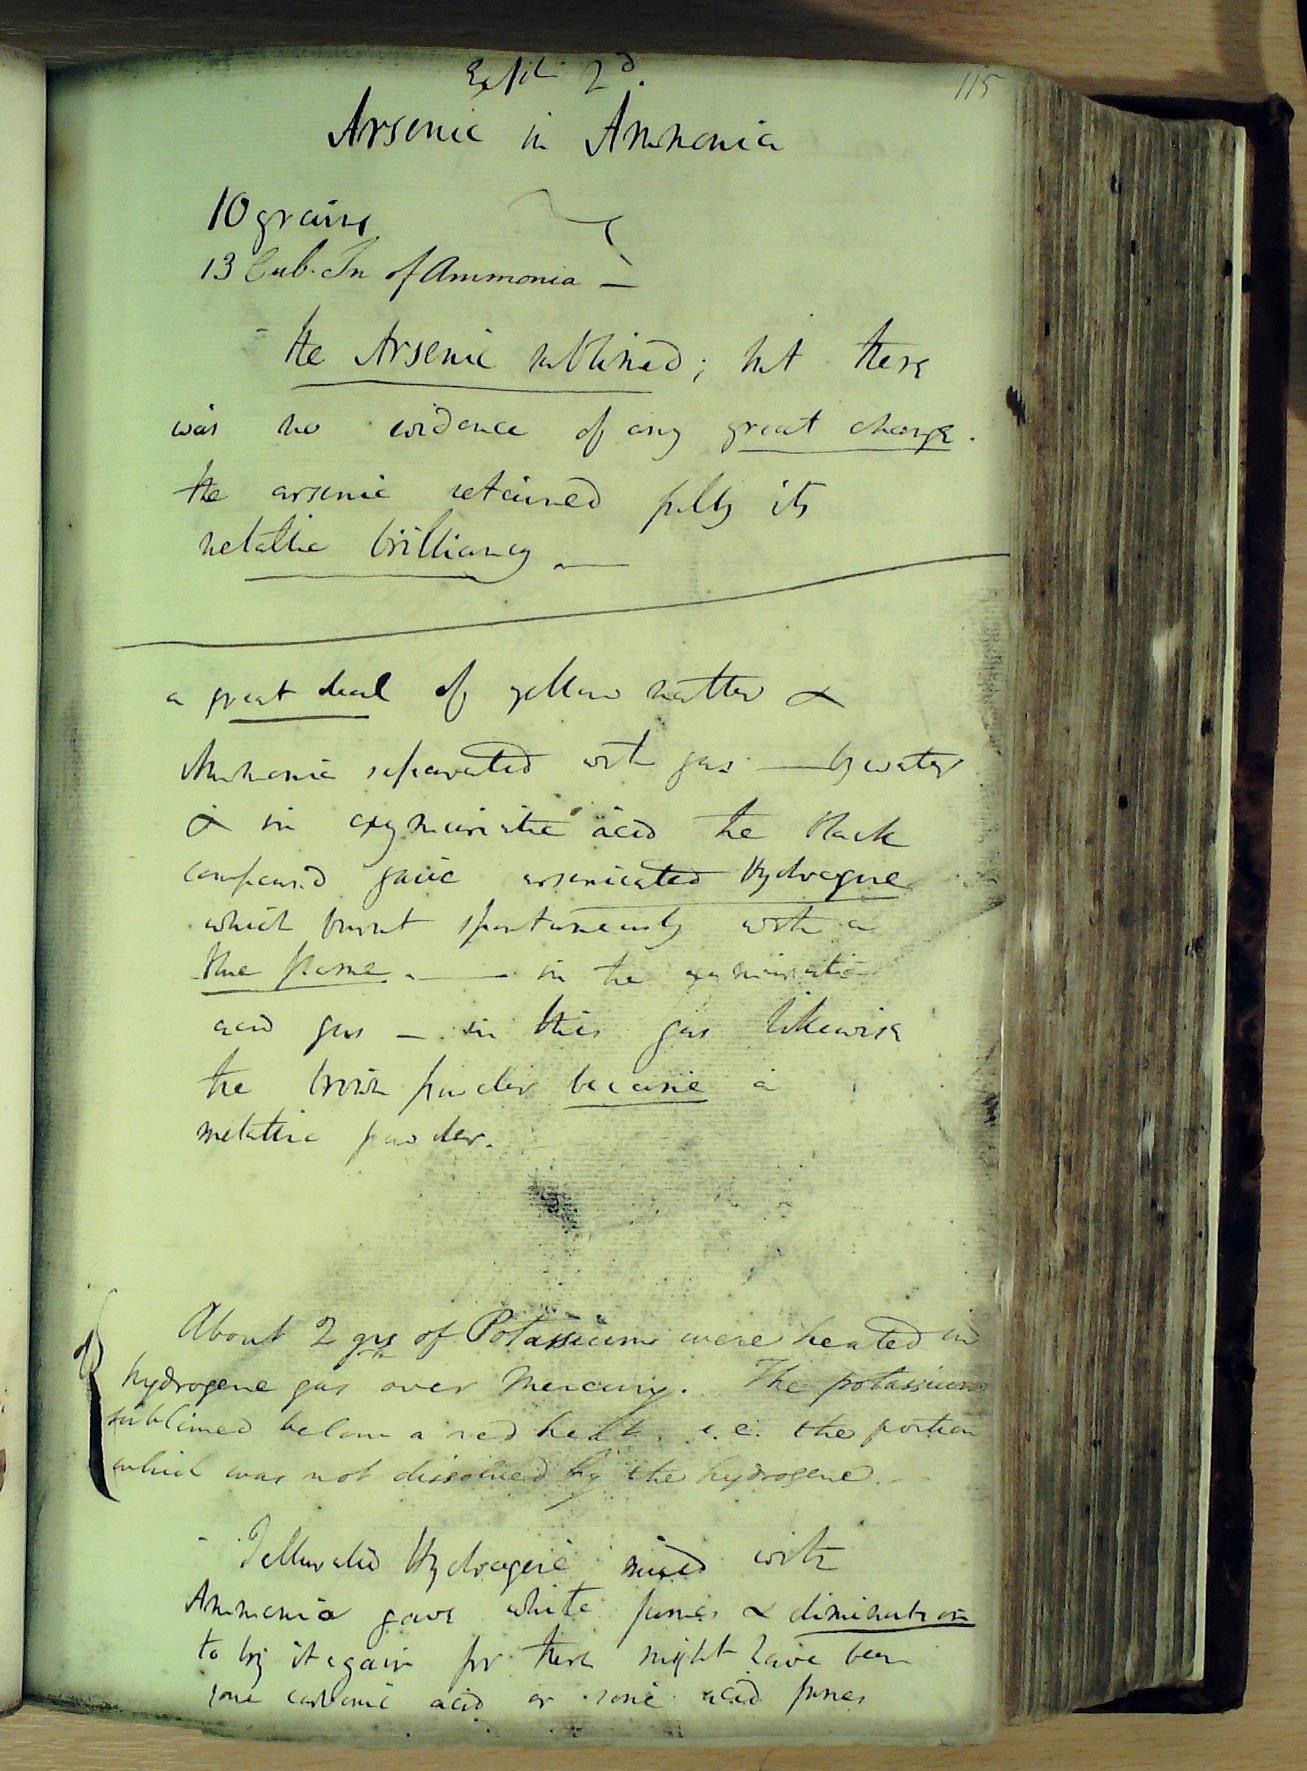 Expt 2d.
115
Arsenic in Ammonia
10 grains
13 Cub. In of Ammonia —
- the Arsenic sublimed; but there
was no evidence of any great change.
the arsenic retained fully its
metallic brilliancy —
a great deal of yellow matter &
Ammonia separated with gas — by water
& in oxymuriatic acid the black
compound gave arsenicated Hydrogene
which burnt spontaneously with a
blue flame. — in the oxymuriatic
acid gas — in this gas likewise
the brown powder became a
metallic powder.
About 2 grs of Potassium were heated in
hydrogene gas over Mercury. The potassium
sublimed below a red heat. i.e. the portion
which was not dissolved by the hydrogene. —
- Tellurated Hydrogene mixed with
Ammonia gave white fumes & diminution
to try it again for there might have been
some carbonic acid or some acid fumes